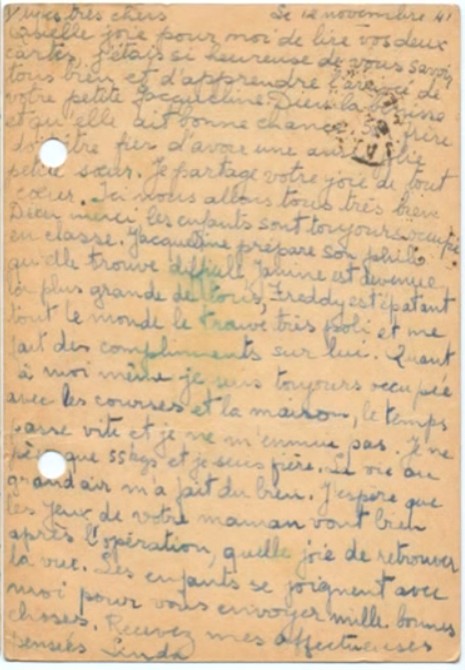 mes très chers Le 12 novembre 41
Quelle joie pour moi de lire vos deux
cartes, j'étais si heureuse de vous savoir
tous bien et d'apprendre l'arrivée de
votre petite Jacqueline. Dieu la bénisse
et qu'elle ait bonne chance frère
doit être fier d'avoir une aussi jolie
petite sœur. Je partage votre joie de tout
cœur. Ici nous allons tous très bien
Dieu merci les enfants sont toujours occupés
en classe. Jacqueline prépare son philo
qu'elle trouve difficile Janine est devenue
la plus grande de tous, Freddy est épatant
tout le monde le trouve très poli et me
fait des compliments sur lui. Quant
à moi même je suis toujours occupée
avec les courses et la maison, le temps
passe vite et je ne m'ennuie pas. Je ne
pèse que 55 kgs et je suis fière. La vie au
grand air m'a fait du bien. J'espère que
les yeux de votre maman vont bien
après l'opération, quelle joie de retrouver
la vue. Les enfants se joignent avec
moi pour vous envoyer mille bonnes
choses. Recevez mes affectueuses
pensées Linda